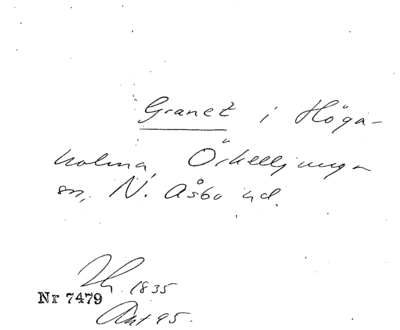 Granet i Höga-
holma, Örkelljunga
sn, N. Åsbo hd.
1835
Nr 7479
95.